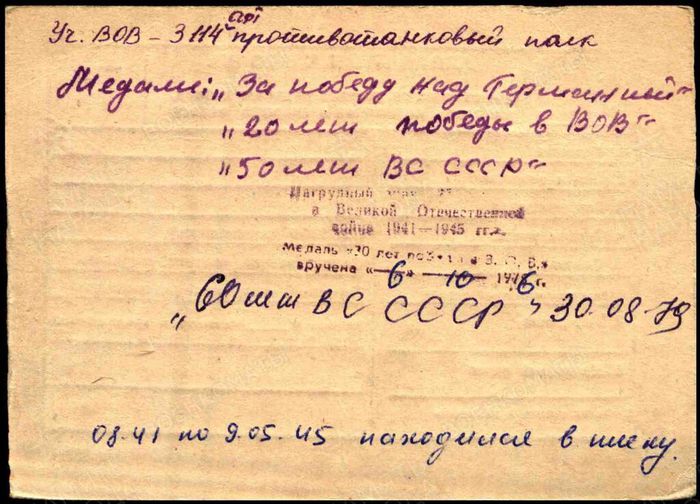 арт
Уч. ВОВ – 3 114 противотанковый полк
Медали: „За победу над Германией"
„20 лет победы в ВОВ"
„50 лет ВС СССР"
Нагрудный знак
в Великой Отечественной
войне 1941—1945 гг.
Медаль «30 лет поб в В. О. В.»
вручена «6» 10 1976 г.
„60 лет ВС СССР" 30.08.79
08.41 по 9.05.45 находился в плену.